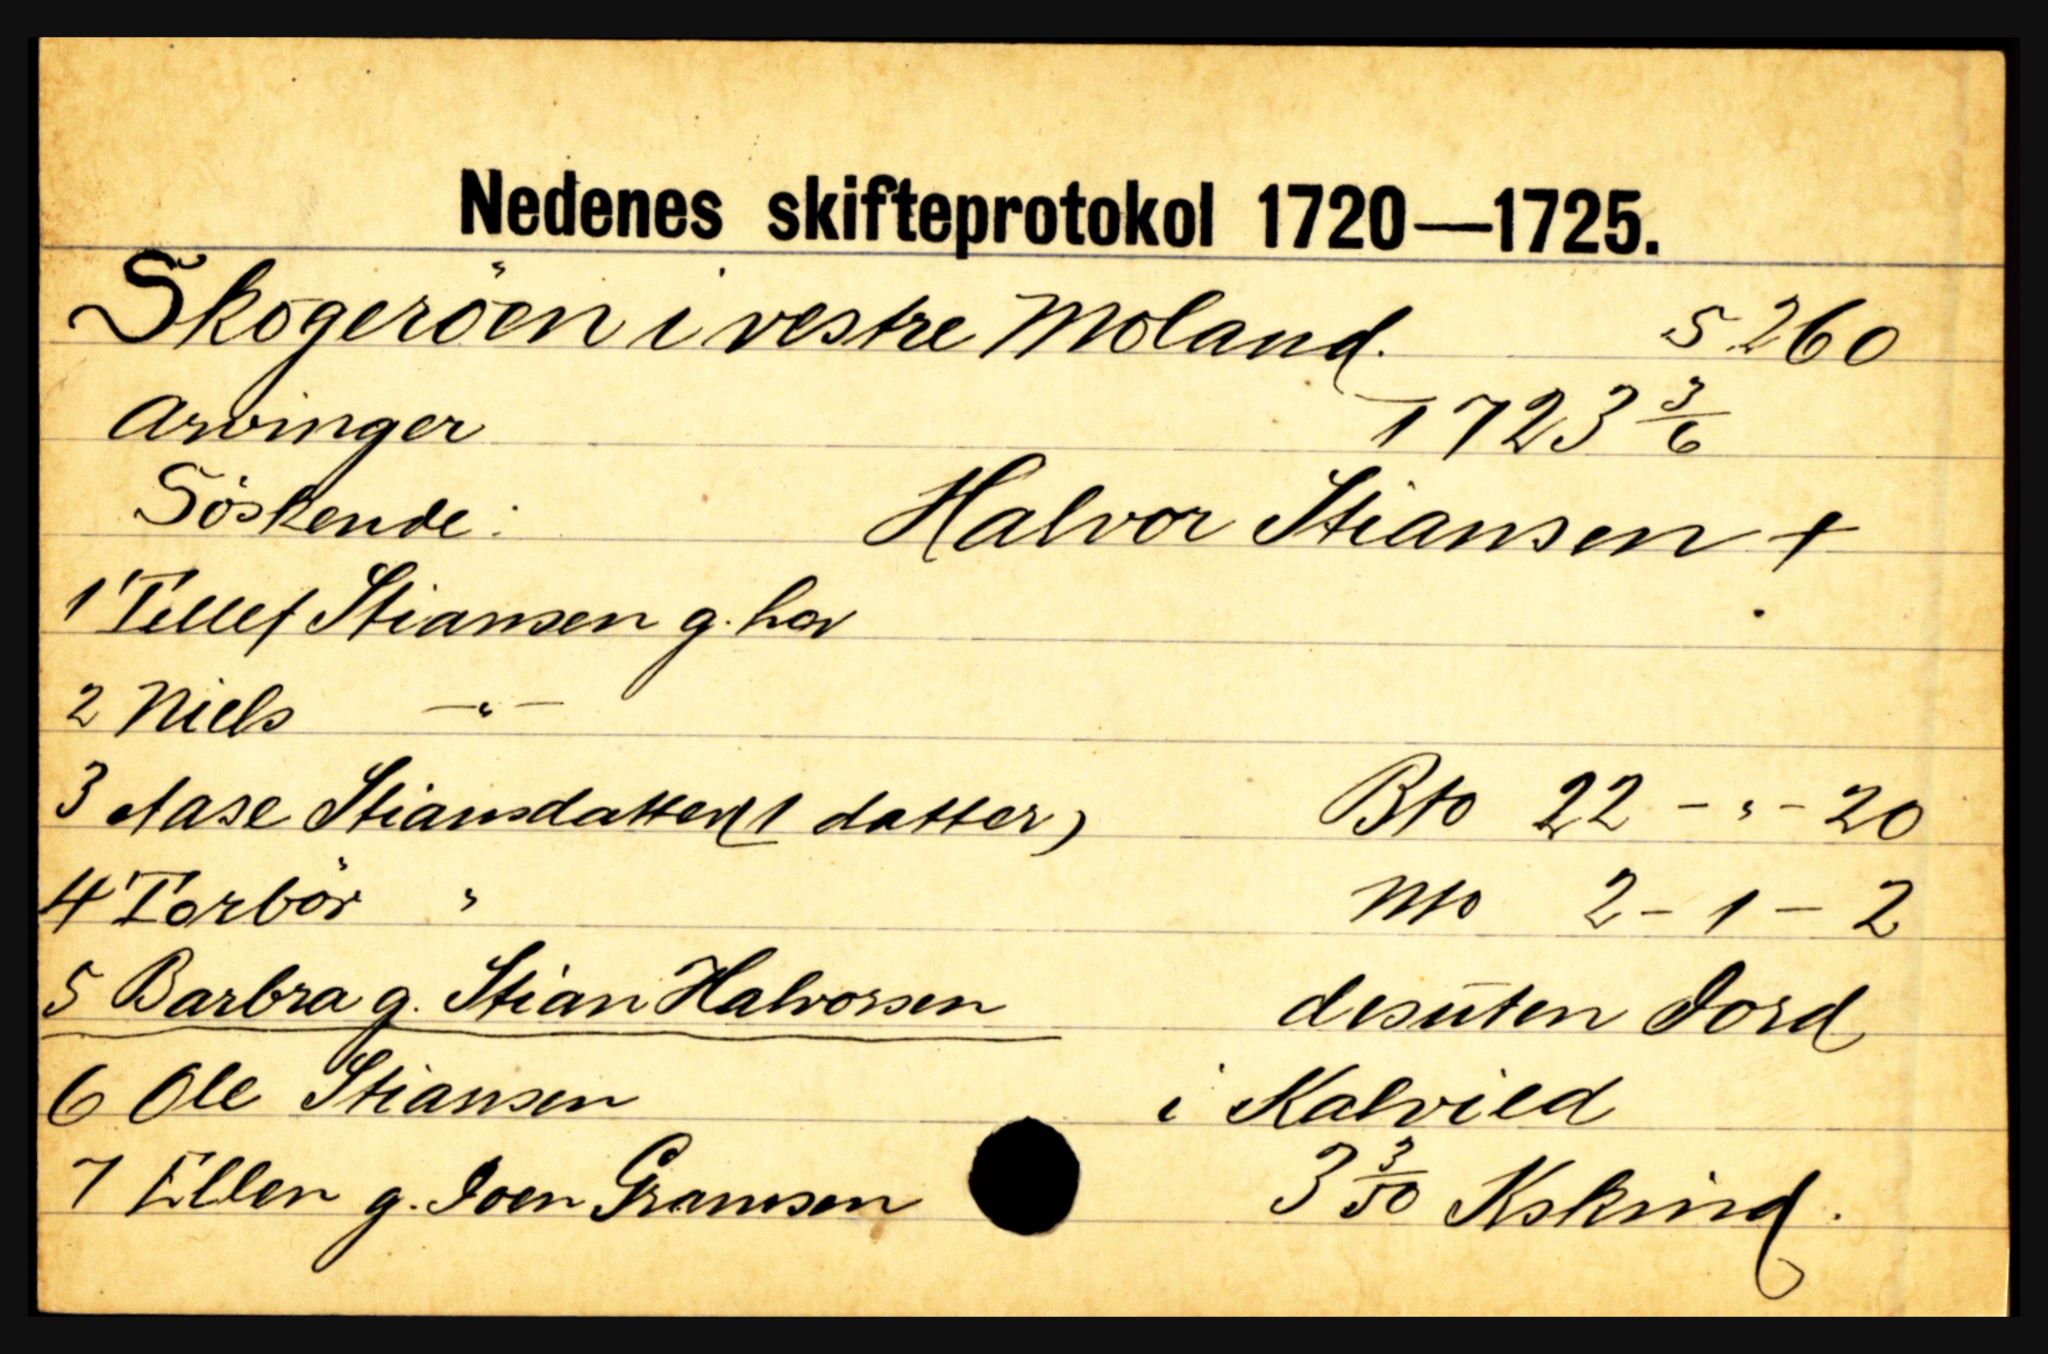 Nedenes skifteprotokol 1720—1725.
Skogeröen i vestre Moland. S 260
Arvinger 1723 3/6
Söskende: Halvor Stiansen +
1 Tellef Stiansen g. har
2 Niels —"—
3 Aase Stiansdatter (1 datter) Bto 22 - " - 20
4 Torbör " Nto 2 - 1 - 2
5 Barbra g. Stian Halvorsen desuten Jord
6 Ole Stiansen i Kalvild
7 Ellen g. Joen Gramsen 3 3/50 Kskind.